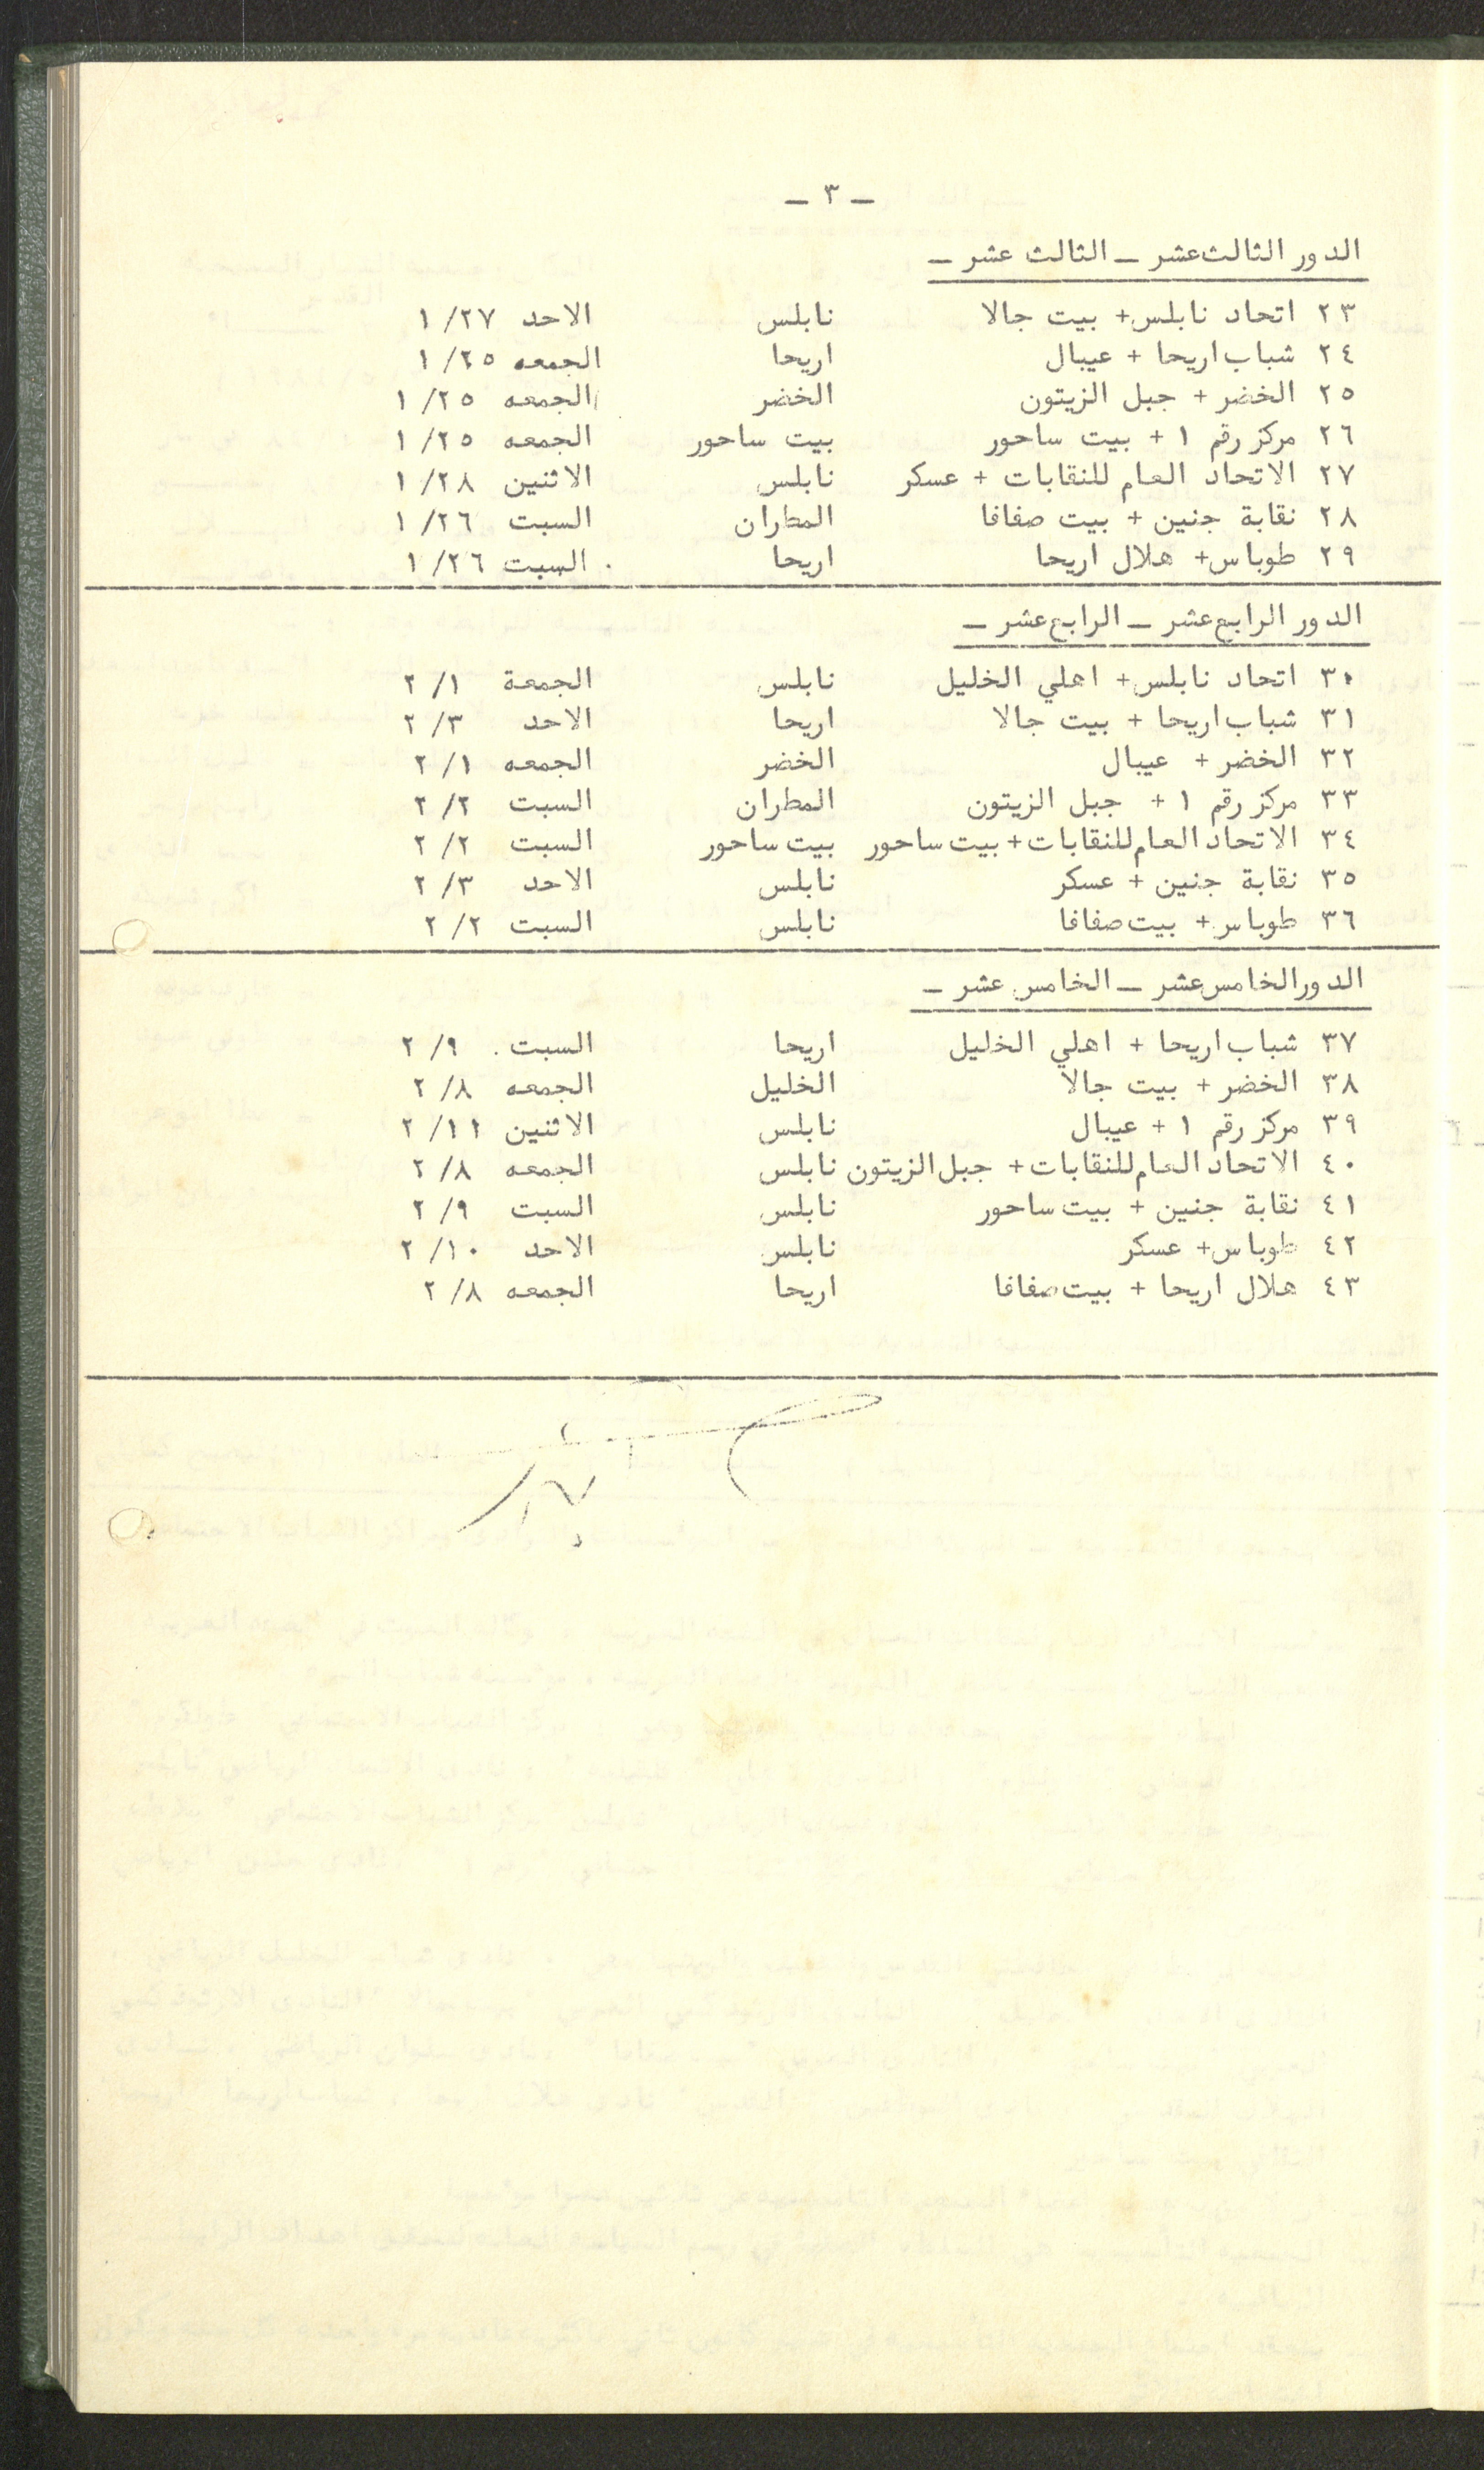 ـ ٣ ـ
الدور الثالث عشر ـ الثالث عشر ـ
٢٣ اتحاد نابلس+ بيت جالا نابلس الاحد ١/٢٧
٢٤ شباب اريحا + عيبال اريحا الجمعه ١/٢٥
٢٥ الخضر + جبل الزيتون الخضر الجمعه ١/٢٥
٢٦ مركز رقم ١ + بيت ساحور بيت ساحور الجمعه ١/٢٥
٢٧ الاتحاد العام للنقابات + عسكر نابلس الاثنين ١/٢٨
٢٨ نقابة جنين + بيت صفافا المطران السبت ١/٢٦
٢٩ طوباس+ هلال اريحا اريحا السبت ١/٢٦
الدور الرابع عشر ـ الرابع عشر ـ
٣٠ اتحاد نابلس+ اهلي الخليل نابلس الجمعة ٢/١
٣١ شباب اريحا + بيت جالا اريحا الاحد ٢/٣
٣٢ الخضر + عيبال الخضر الجمعه ٢/١
٣٣ مركز رقم ١ + جبل الزيتون المطران السبت ٢/٢
٣٤ الاتحاد العام للنقابات + بيت ساحور بيت ساحور السبت ٢/٢
٣٥ نقابة جنين + عسكر نابلس الاحد ٢/٣
٣٦ طوباس+ بيت صفافا نابلس السبت ٢/٢
الدور الخامس عشر ـ الخامس عشر ـ
٣٧ شباب اريحا + اهلي الخليل اريحا السبت ٢/٩
٣٨ الخضر + بيت جالا الخليل الجمعه ٢/٨
٣٩ مركز رقم ١ + عيبال نابلس الاثنين ٢/١١
٤٠ الاتحاد العام للنقابات+ جبل الزيتون نابلس الجمعه ٢/٨
٤١ نقابة جنين + بيت ساحور نابلس السبت ٢/٩
٤٢ طوباس+ عسكر نابلس الاحد ٢/١٠
٤٣ هلال اريحا + بيت صفافا اريحا الجمعه ٢/٨